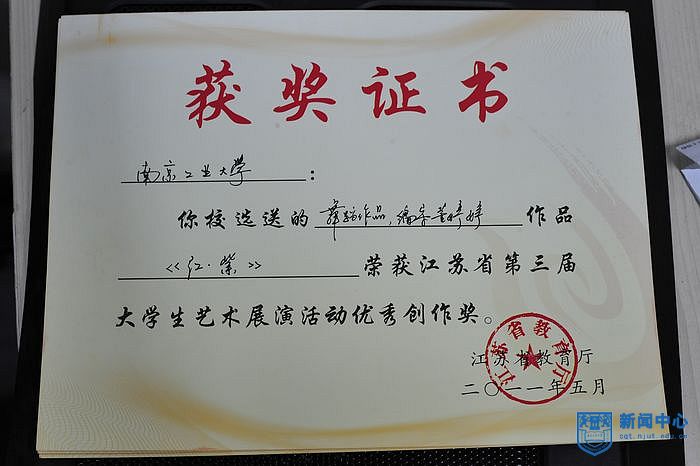 获奖证书
南京工业大学：
你校选送的 舞蹈作品，编导 婷婷 作品
《红·紫》 荣获江苏省第三届
大学生艺术展演活动优秀创作奖。
江苏省教育厅
二〇一一年五月
江苏省教育厅
新闻中心
cqt.njut.edu.cn